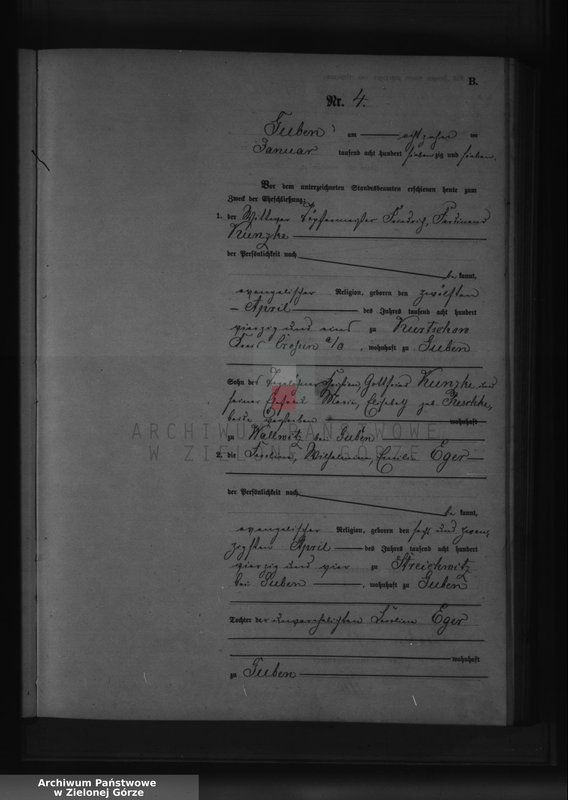 B.
Nr. 4.
Guben, am achtzehn ten
Januar tausend acht hundert siebenzig und sieben.
Vor dem unterzeichneten Standesbeamten erschienen heute zum
Zweck der Eheschließung:
1. der Wittwer Töpfermeister Friedrich, Ferdinand
Kunzke
der Persönlichkeit nach
be kannt,
evangelischer Religion, geboren den zwölften
April des Jahres tausend acht hundert
vierzig und eins zu Kurtschow
Kreis Crossen a/O , wohnhaft zu Guben
Sohn des Gottfried Kunzke und
seiner Ehefrau Maria, Elisabeth geb. Reschke,
beide verstorben wohnhaft
zu Wallwitz bei Guben
2. die Wilhelmine, Emilie Eger
der Persönlichkeit nach
be kannt,
evangelischer Religion, geboren den sechs und zwan-
zigsten April des Jahres tausend acht hundert
vierzig und vier zu Streichwitz
bei Guben , wohnhaft zu Guben
Tochter der unverehelichten Eger
wohnhaft
zu Guben
ARCHIWUM PAŃSTWOWE
W ZIELONEJ GÓRZE
Archiwum Państwowe
w Zielonej Górze